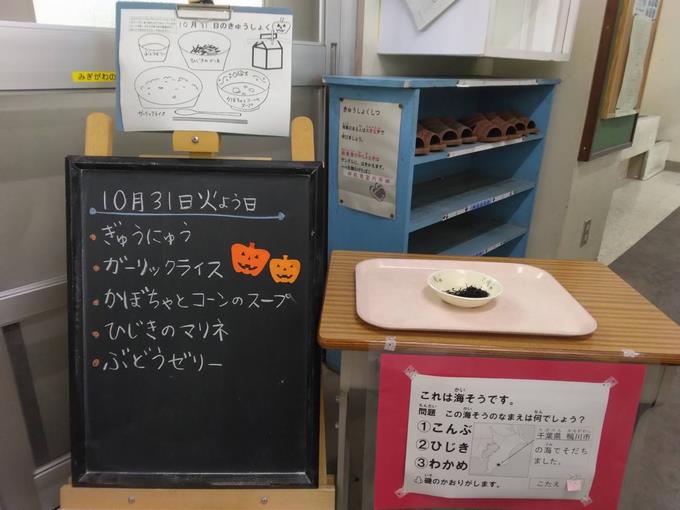 10月31日のきゅうしょく
ぶどうゼリー
ひじきのマリネ
ガーリックライス
かぼちゃとコーンの
スープ
みぎがわの
10月31日火よう日
・ぎゅうにゅう
・ガーリックライス
・かぼちゃとコーンのスープ
・ひじきのマリネ
・ぶどうゼリー
きゅうしょくしつ
これは海そうです。
問題 この海そうのなまえは何でしょう?
①こんぶ
②ひじき
③わかめ
千葉県 鴨川市
の海でそだち
ました。
磯のかおりがします。
こたえ